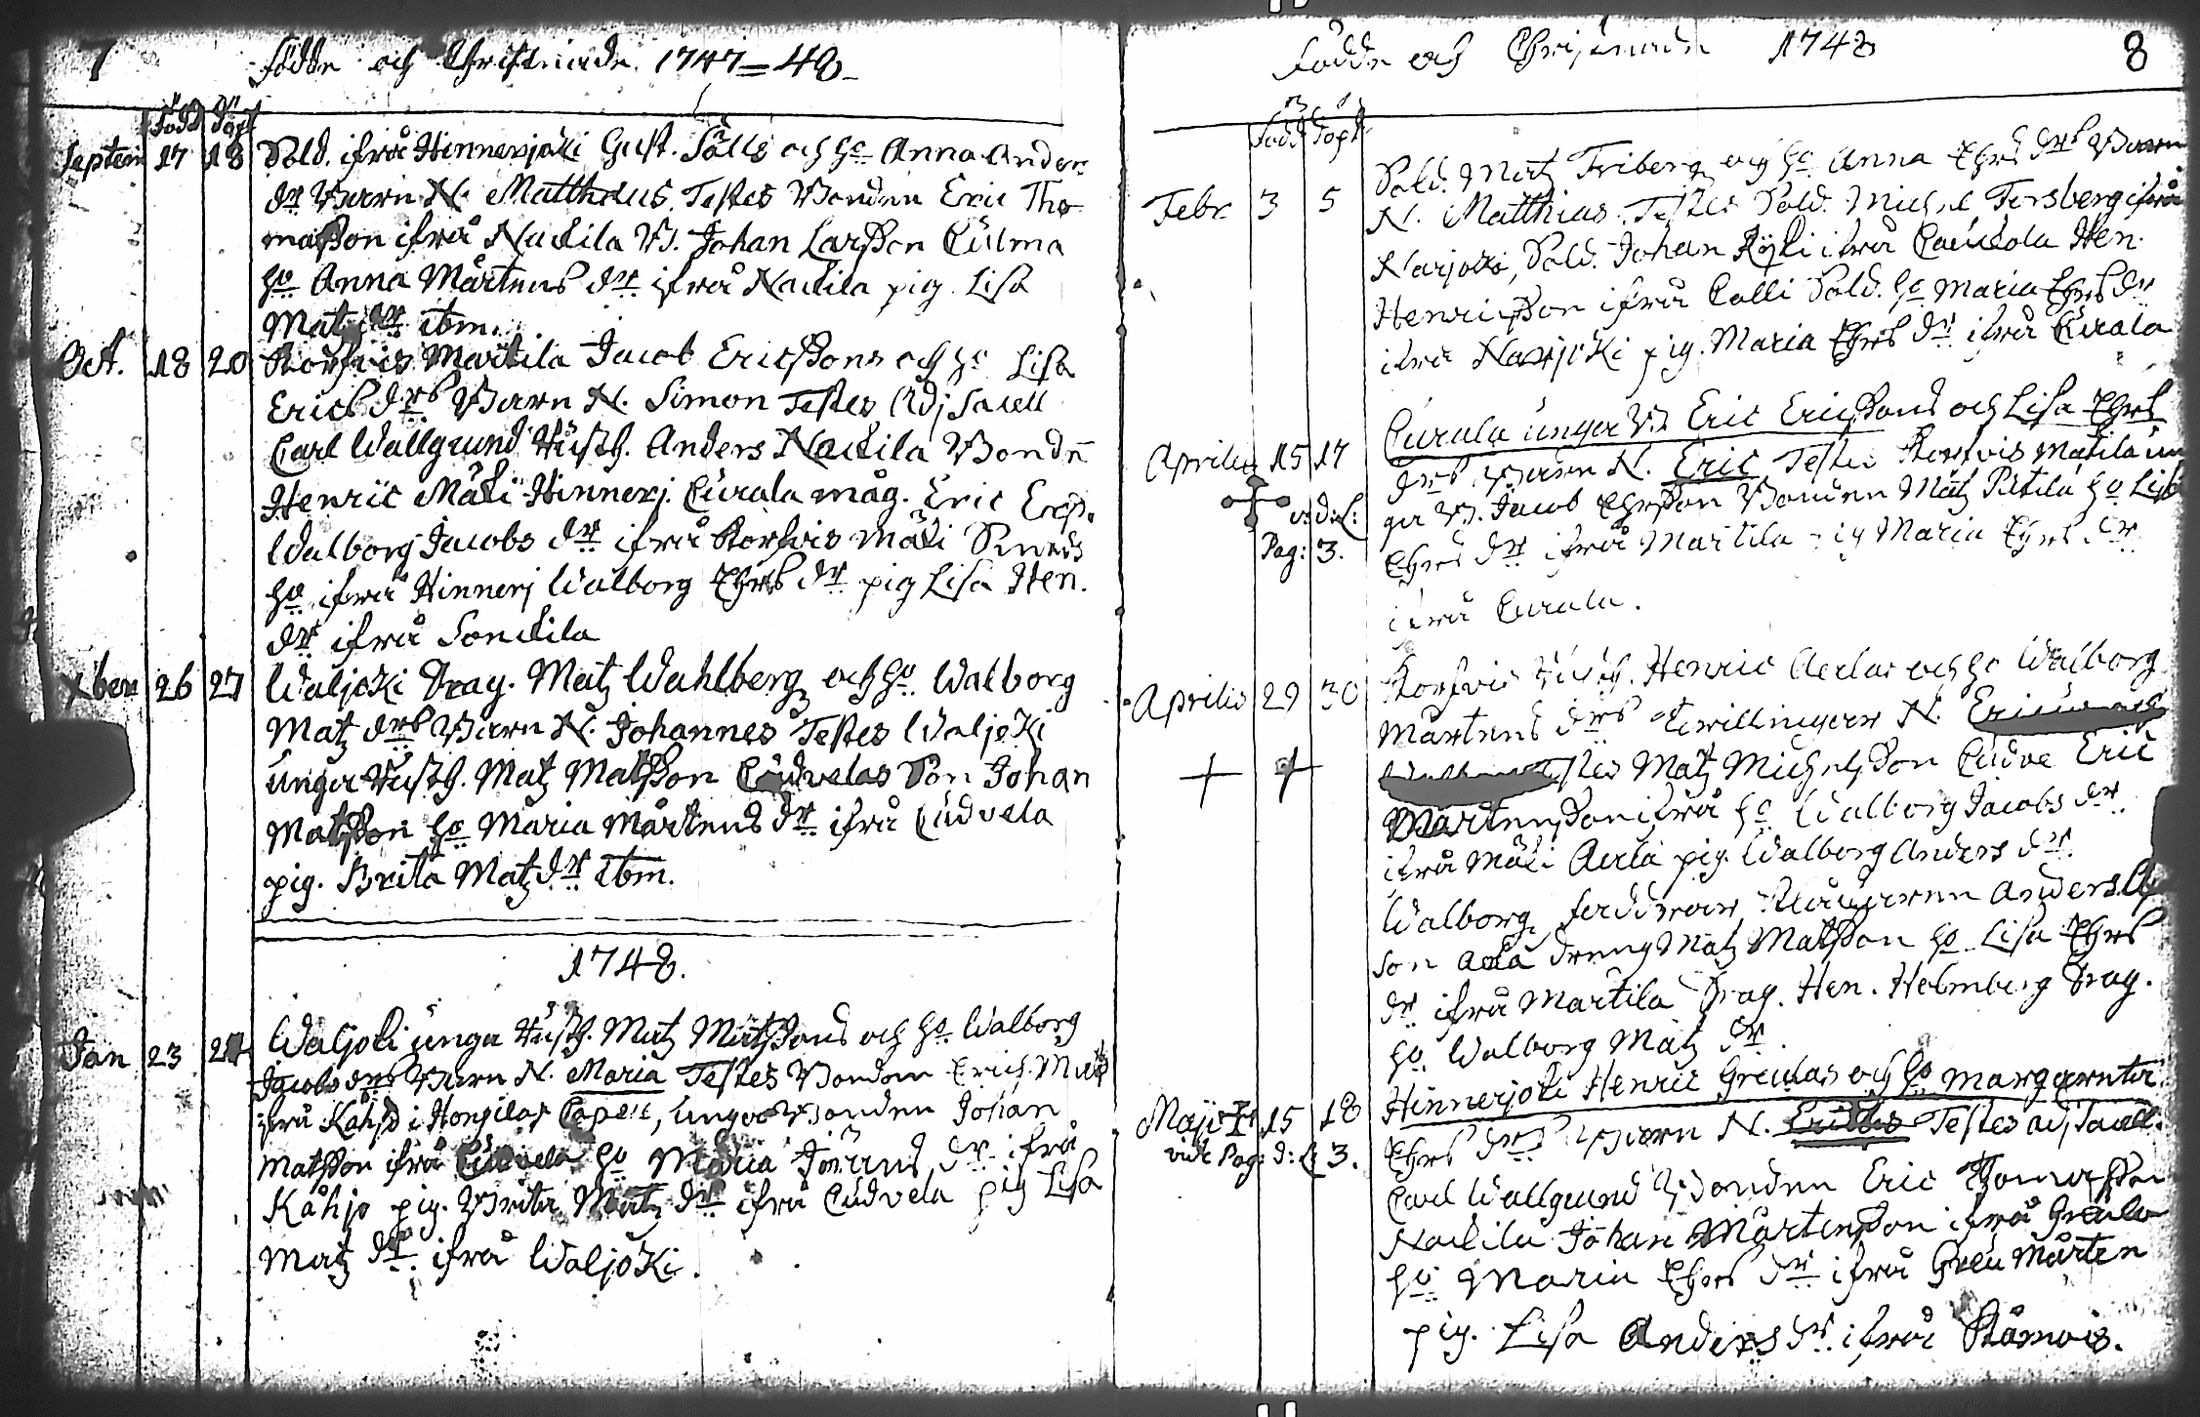 7
Födde och Christnade 1747=48
Född Döpt
Septem 17 18 Sold. ifrå Hinnerjoki Gust. Sälls och ho Anna Anders
dr Barn N. Matthæus. Testes Bonden Eric Tho
masson ifrå Nackila B. Johan Larsson Culma
ho Anna Mårtens dr ifrå Nackila pig. Lisa
Matz dr ibm.
Oct. 18 20 Korfvis Martila Jacob Ericssons och ho Lisa
Erics drs Barn N. Simon Testes Adj Sacell
Carl Wallgrund Rusth. Anders Nackila Bond
Henric Mäki Hinnerj. Curala måg. Eric Erss.
Walborg Jacobs dr ifrå Korfvis Mäki
ho ifrå Hinnerj Walborg Ehrs dr pig Lisa Hen.
dr ifrå Sonckila
Xber 26 27 Waljoki Drag. Matz Wahlberg och ho Walborg
Matz drs Barn N. Johannes Testes Waljoki
unga Rusth. Matz Matsson Cudvelas Son Johan
Matsson ho Maria Mårtens dr ifrå Cudvela
pig. Brita Matz dr ibm.
1748.
Jan 23 24 Waljoki unga Rusth. Matz Matssons och ho Walborg
Jacobs drs Barn N. Maria Testes Bonden Erich
ifrå Kåhjo i Honjilax Capell, unga Bonden Johan
Matsson ifrå Cudvela ho Maria Jörans dr ifrå
Kåhjo pig. Brita Matz dr ifrå Cudvela pig Lisa
Matz dr ifrå Waljoki.
Födde och Christnade 1748
8
Född Döpt
Febr. 3 5 Sold. Matz Friberg och ho Anna Ehrs drs Barn
N. Matthias. Testes Sold. Michel Forsberg ifrå
Narjoki, Sold. Johan ifrå Hen.
Henricsson ifrå Calli Sold. ho Maria Ehrs dr
ifrå Narjoki pig. Maria Ehrs dr ifrå Curala
Aprilis 15 17 Curala unga B. Eric Ericssons och Lisa Ehrs
drs Barn N. Eric Testes Korfvis Matila un
ga B. Jacob Ehrsson Bonden Matz Pitila ho Lisa
vid: L:
Pag: 3.
Ehrs dr ifrå Martila pig Maria Ehrs dr
ifrå Curala.
Aprilis 29 30 Korfvis Rusth. Henric och ho Walborg
Mårtens drs twillingar N.
Testes Matz Michelsson Cudve Eric
Mårtensson ifrå ho Walborg Jacobs dr
ifrå Mäki pig. Walborg Anders dr.
Walborg, faddrar Anders
son dreng Matz Matsson ho Lisa Ehrs
dr ifrå Martila Drag. Hen. Helmberg Drag.
ho Walborg Matz dr.
Maji 15 18 Hinnerjoki Henric och ho Margareta
vide Pag: d: L 3.
Ehrs drs Barn N. Testes adj Sacell.
Carl Wallgrund Bonden Eric Thomasson
Nackila Johan Mårtensson ifrå
ho Maria Ehrs dr ifrå Mårten
pig. Lisa Anders dr ifrå